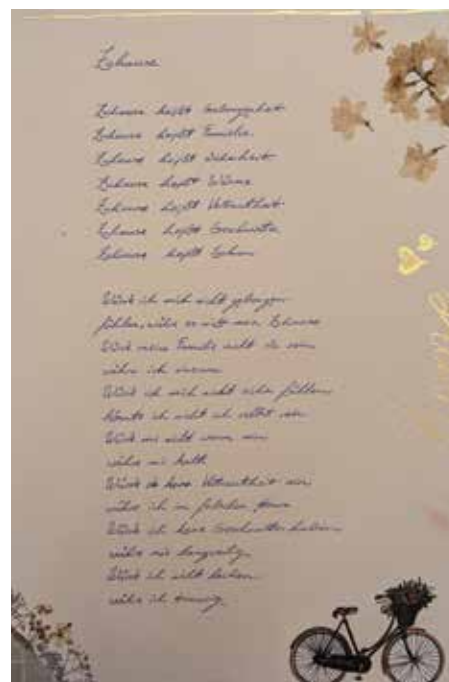 Zuhause
Zuhause heißt Geborgenheit
Zuhause heißt Familie
Zuhause heißt Sicherheit
Zuhause heißt Wärme
Zuhause heißt Vertrautheit
Zuhause heißt Geschwister
Zuhause heißt Lachen
Würde ich mich nicht geborgen
fühlen, währe es nicht mein Zuhause
Würde meine Familie nicht da sein
währe ich einsam
Würde ich mich nicht sicher fühlen
könnte ich nicht ich selbst sein
Würde mir nicht warm sein
währe mir kalt
Würde da keine Vertrautheit sein
währe ich im falschen Haus
Würde ich keine Geschwister haben
währe mir langweilig
Würde ich nicht lachen
währe ich traurig